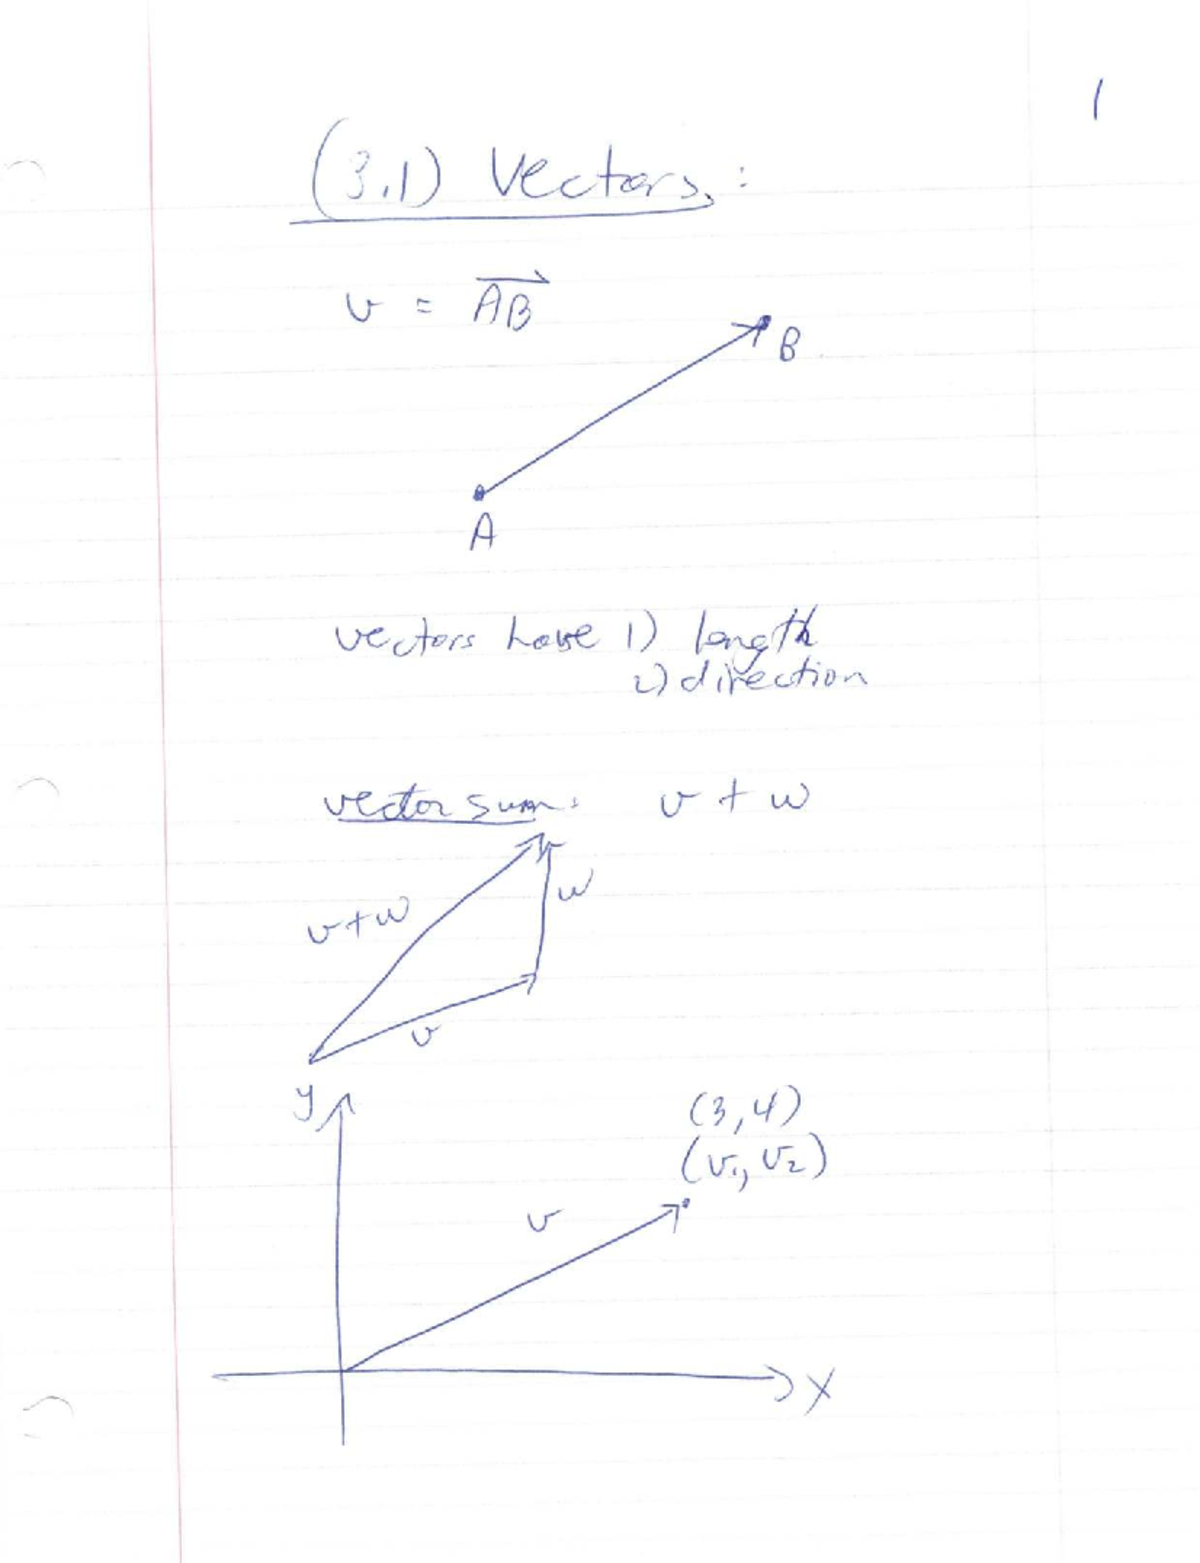 1
(3.1) Vectors:
v = AB
B
A
vectors have 1) length
2) direction
vector sum: v + w
w
v+w
v
y
(3,4)
(v₁, v₂)
v
x